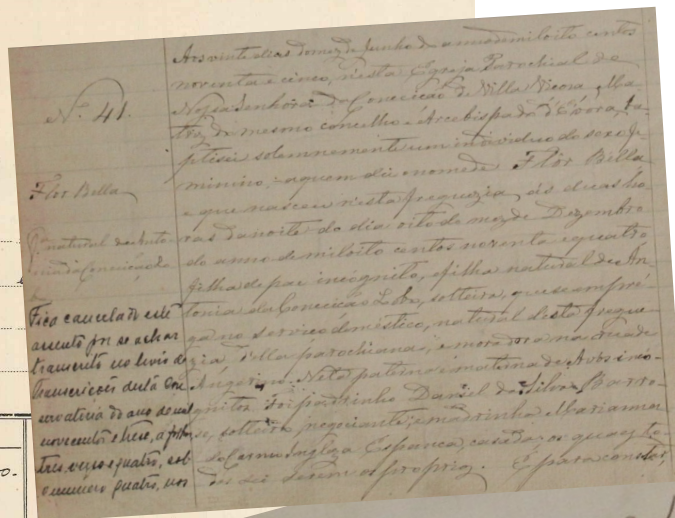 Nº 41.
Flor Bella
Fª natural de Anto-
nia da Conceição Lo-
Fica cancelado este
assento por se achar
transcrito no livro de
transcrições desta Con-
servatória do ano de mil
novecentos e treze, a folhas
tres verso e quatro, sob
o numero quatro, nos
Aos vinte dias do mez de Junho do anno de mil oito centos
noventa e cinco, nesta Egreja Parochial de
Nossa Senhora da Conceição de Villa Viçosa, Ma
triz, do mesmo concelho e Arcebispado d'Evora, ba-
ptisei solemnemente um individuo do sexo fe-
minino a quem dei o nome de Flor Bella
e que nasceu n'esta freguezia, ás duas ho-
ras da noite do dia oito do mez de Dezembro
do anno de mil oito centos noventa e quatro
filha de pae incognito, e filha natural de An-
tonia da Conceição Lobo, solteira, que se empre-
ga no serviço domestico, natural d'esta fregue-
zia, d'ella parochiana, e moradora na rua de
Angerino. Neta paterna e materna de Avós incó-
gnitos. Foi padrinho Daniel da Silva Barro-
so, solteiro, negociante, e madrinha Marianna
do Carmo Ingleza Espanca, casada, os quaes to-
dos sei serem os proprios. E para constar,
o.